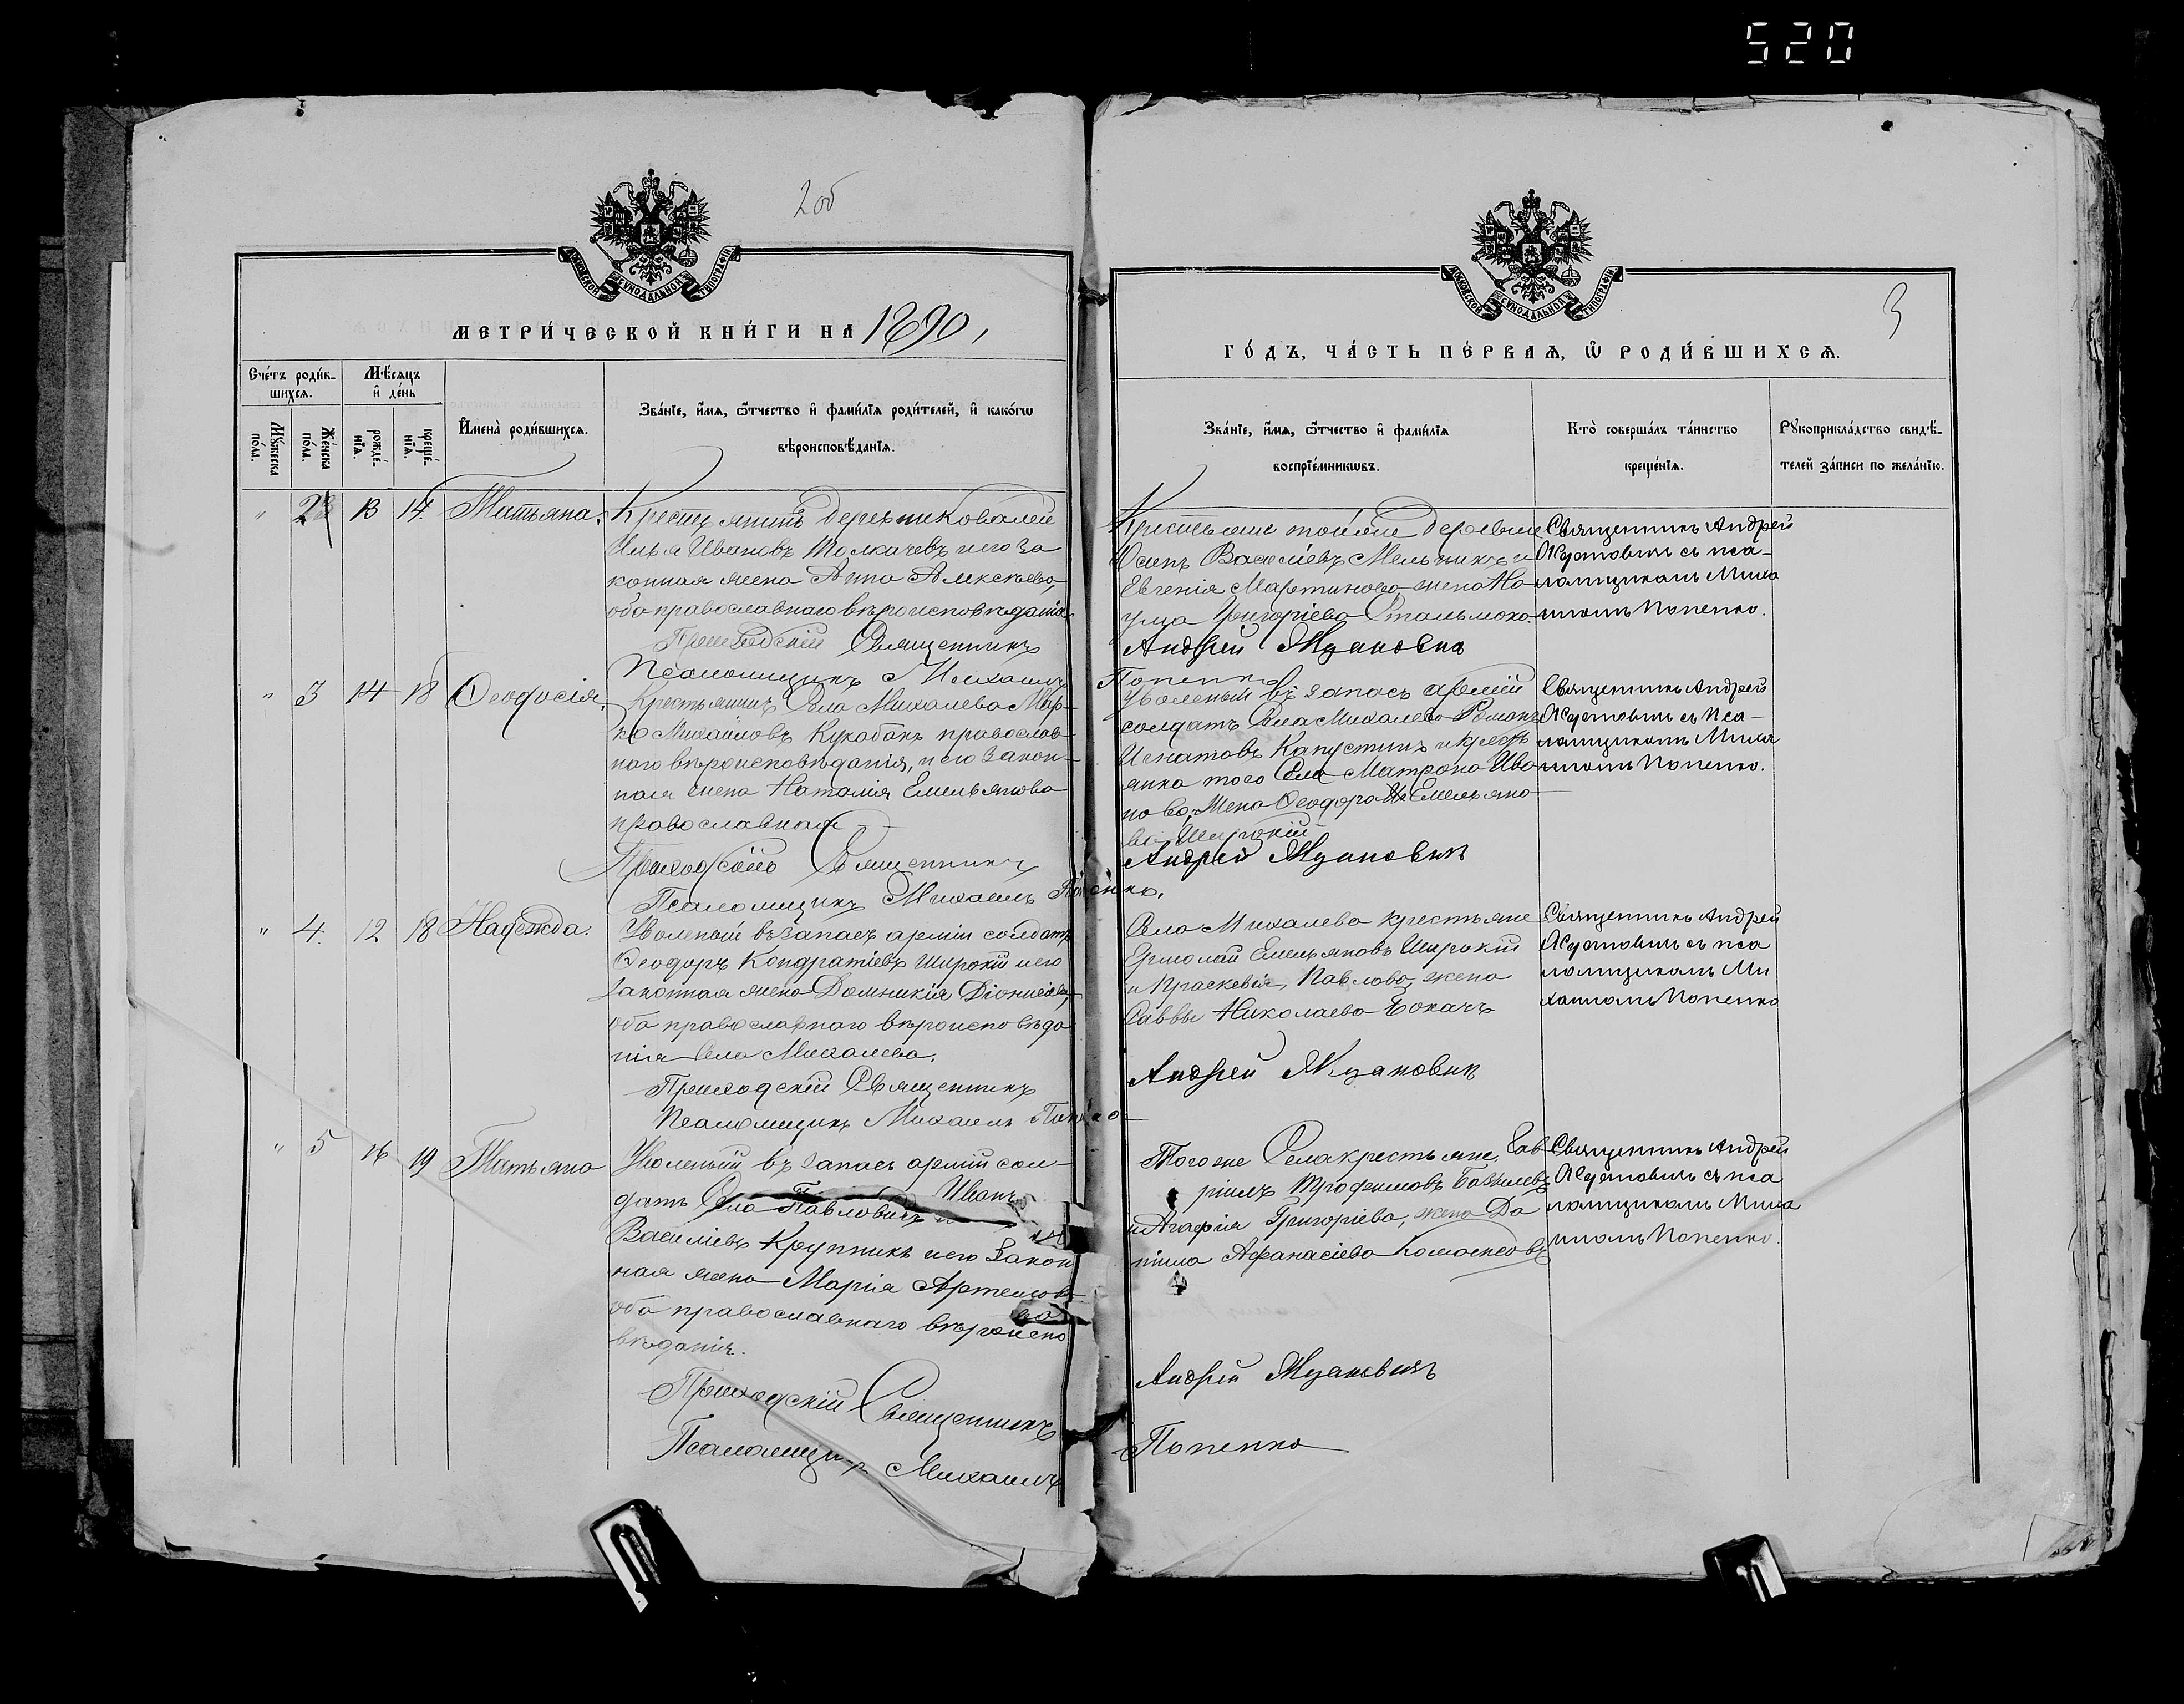 520
2об
МОСКОВСКОЙ СѴНОДАЛЬНОЙ ТИПОГРАФІИ
МЕТРИ́ЧЕСКОЙ КНИ́ГИ НА 1890,
Сче́тъ роди́в-
шихсѧ.
Мѣ́сяцъ
и҆ де́нь
Мꙋ́жеска
по́ла.
Же́нска
по́ла.
рожде́-
нїѧ.
креще́-
нїѧ.
И҆мена̀ роди́вшихсѧ.
Зва́нїе, и҆́мѧ, ѻ҆́тчество и҆ фами́лїѧ роди́телей, и҆ како́гѡ
вѣроисповѣ́данїѧ.
" 2 13 14. Татьяна.
Крестьянинъ деревни Ковалей
Илья Ивановъ Толкачевъ и его за
конная жена Анна Алексѣева,
оба православнаго вѣроисповѣданія
Приходскій Священникъ
Псаломщикъ Михаилъ
" 3 14 18 Ѳеодосія.
Крестьянинъ Села Михалева Мар-
ко Михайловъ Кукобакъ православ-
наго вѣроисповѣданія, и его закон-
ная жена Наталія Емельянова
православная
Приходской Священникъ
Псаломщикъ Михаилъ Попенко.
" 4. 12 18 Надежда.
Уволеный въ запасъ арміи солдатъ
Ѳеодоръ Кондратіевъ Широкій и его
законная жена Домникія Діонисіева,
оба православнаго вѣроисповѣда
нія Села Михалева.
Приходскій Священникъ
Псаломщикъ Михаилъ Попенко
" 5 16 19 Татьяна
Уволеный въ запасъ арміи сол-
датъ Села Павловичъ Иванъ
Василіевъ Крупникъ и его закон
ная жена Марія Артемова
оба православнаго вѣроиспо
вѣданія.
Приходскій Священникъ
Псаломщикъ Михаилъ
3
МОСКОВСКОЙ СѴНОДАЛЬНОЙ ТИПОГРАФІИ
ГО́ДЪ, ЧА́СТЬ ПЕ́РВАѦ, Ѡ҆ РОДИ́ВШИХСѦ.
Зва́нїе, и҆́мѧ, ѻ҆́тчество и҆ фами́лїѧ
воспрїе́мникѡвъ.
Кто̀ соверша́лъ та́инство
креще́нїѧ.
Рꙋкоприкла́дство свидѣ́-
телей за́писи по жела́нїю.
Крестьяне той же деревни
Осипъ Василіевъ Мельникъ и
Евгенія Мартинова жена На-
ума Григоріева Стальмоха
Андрей Жданович
Попенко
Священникъ Андрей
Ждановичъ съ пса-
ломщикомъ Миха
иломъ Попенко.
Уволеный въ запасъ арміи
солдатъ Села Михалева Романъ
Игнатовъ Капустинъ и крестъ
янка того Села Матрона Ива
нова, жена Ѳеодора Емельяно
ва Широкій
Андрей Жданович
Священникъ Андрей
Ждановичъ съ пса-
ломщикомъ Миха
иломъ Попенко.
Села Михалева крестьяне
Ермолай Емельяновъ Широкій
и Праскевія Павлова, жена
Саввы Николаева Бокачъ
Андрей Жданович
Священникъ Андрей
Ждановичъ съ пса
ломщикомъ Ми
хаиломъ Попенко
Того же Села крестьяне, Гав
ріилъ Трофимовъ
и Агафія Григоріева, жена Да
нила Афанасіева
Андрей Жданович
Попенко
Священникъ Андрей
Ждановичъ съ пса
ломщикомъ Миха
иломъ Попенко.